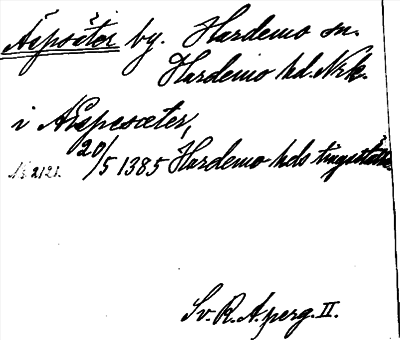 Äspsäter by. Hardemo sn.
Hardemo hd. Nrk.
i Æspesæter,
20/5 1385 Hardemo hds tingställe
Nr 2121.
Sv. R. A. perg. II.